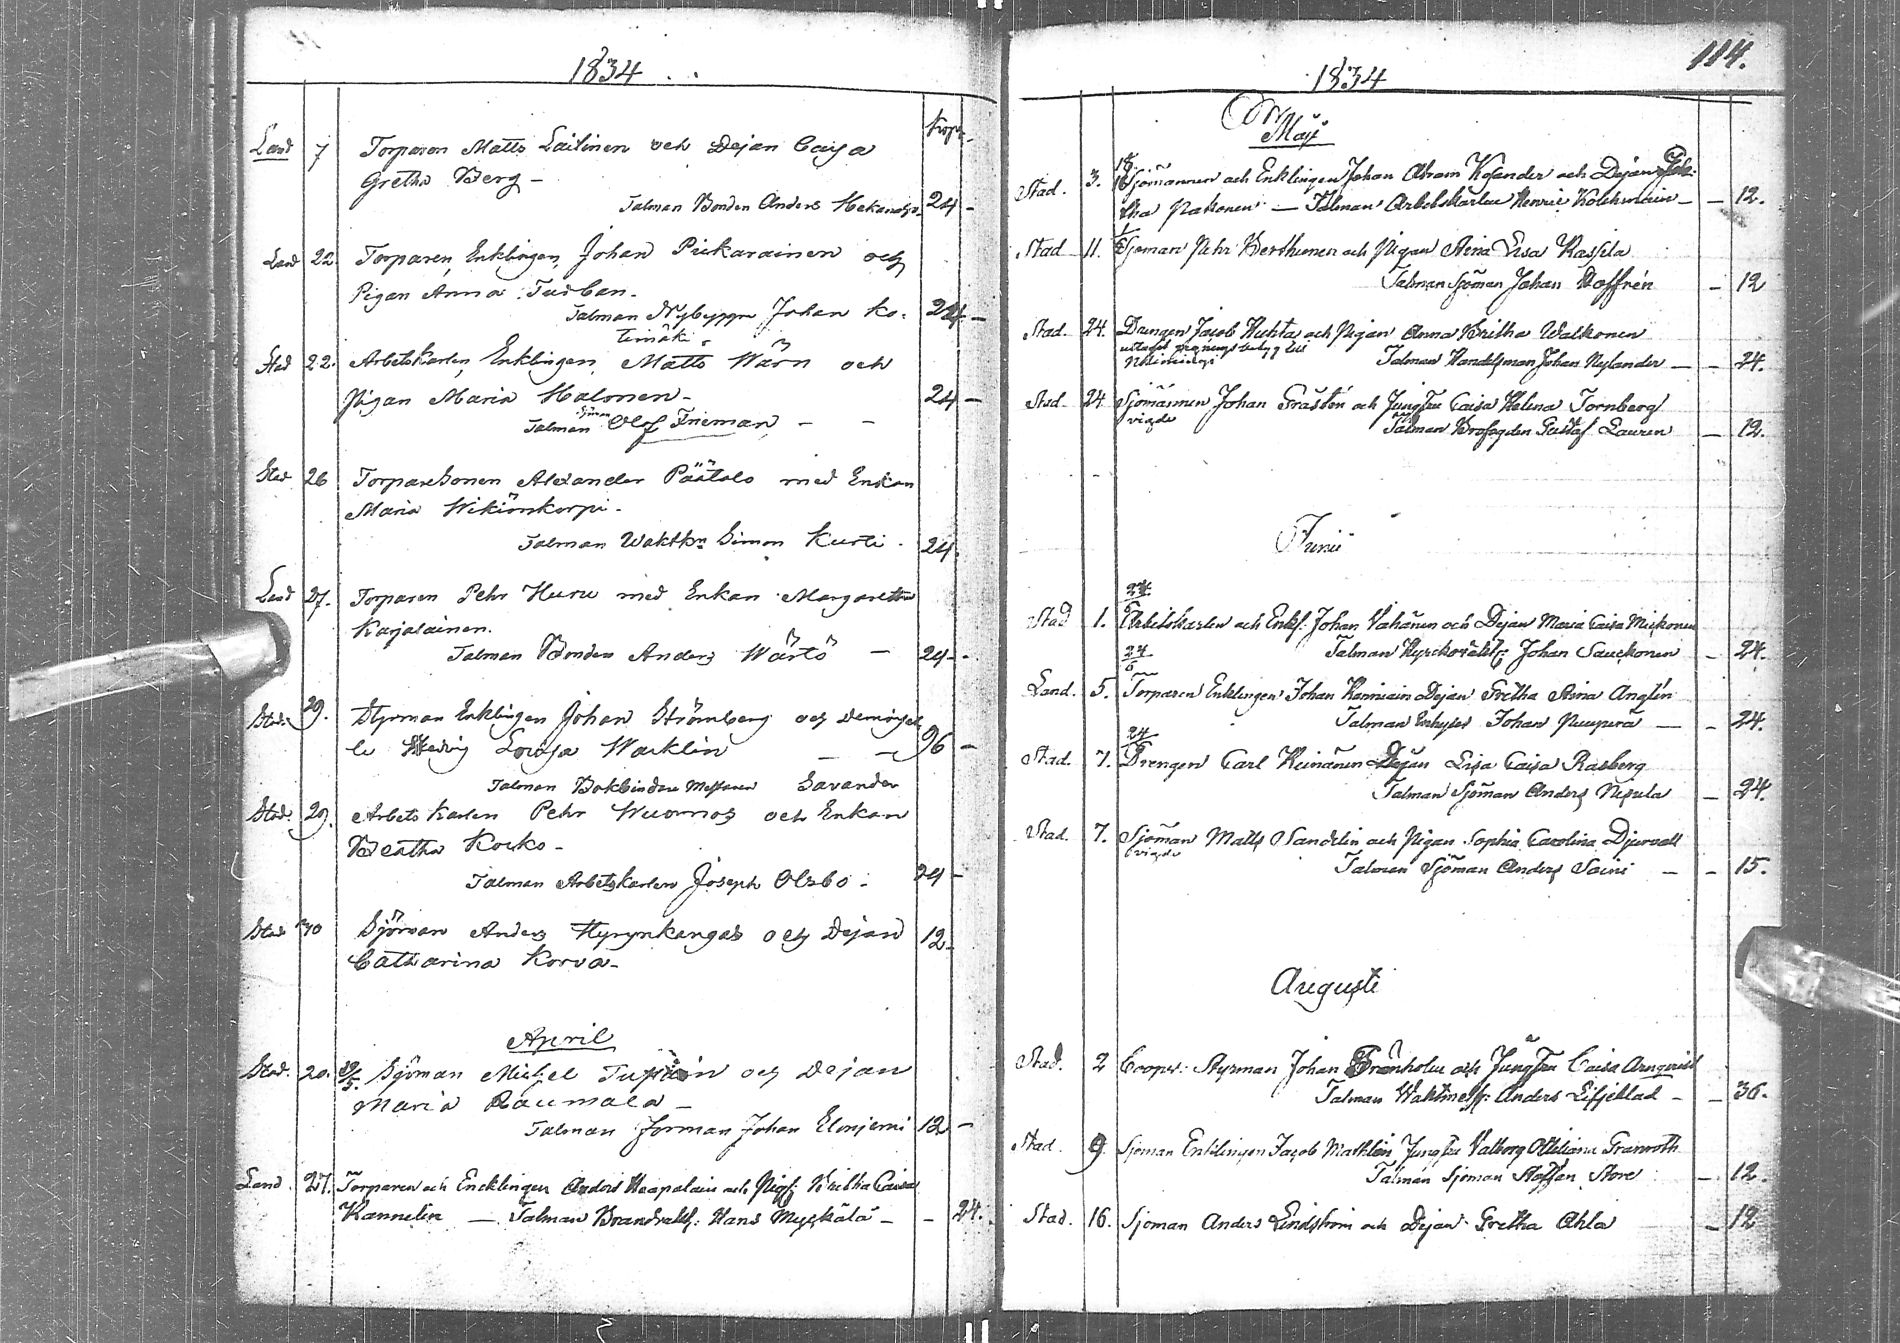 1834
Kop.
Land 7 Torparen Matts Lailinen och Dejan Caisa
Gretha Berg -
Talman Bonden Anders Hekandr. 24 -
Land 22. Torparen, Enklingen, Johan Pukarainen och
Pigan Anna Turban.
Talman Nybyggr Johan Ko- 24 -
timäki.
Stad 22. Arbetskarlen, Enklingen, Matts Wärn och
Pigan Maria Halonen - 24 -
Talman Sjöman Olof Frieman, - -
Stad 26 Torparesonen Alexander Päätalo med Enkan
Maria Wikiönkorpi.
Talman Waktkn Simon Kurti. 24.
Land 27. Torparen Pehr Huru med Enkan Margaretha
Karjalainen.
Talman Bonden Anders Wärtö - 24 -
Stad. 29. Styrman Enklingen Johan Strömberg och Demoisel-
le Hedvig Lovisa Wacklin - 96 -
Talman Bokbindare Mästaren Savander
Stad. 29. Arbets Karlen Pehr Wuornos och Enkan
Beatha Korko -
Talman Arbetskarlen Joseph Olsbo. 24 -
Stad 30 Sjöman Anders Hyrynkangas och Dejan 12 -
Catharina Korva -
April
Stad. 20. 19/5. Sjöman Michel Tuppain och Dejan
Maria Raumala -
Talman Förman Johan Elonjemi 12 -
Land. 27. Torparen och Encklingen Anders Haapalain och Pig: Britha Caisa
Kannelin - Talman Brandvakt: Hans Myskälä - - 24.
114.
1834
Maj
Stad. 3. 18/5 Sjömannen och Enklingen Johan Abram Kosander och Dejan Bri-
tha Pakonen - Talman Arbetskarlen Henric Kolehmain - - 12.
Stad 11. Sjöman Pehr Kerthunen och Pigan Anna Lisa Kassila
Talman Sjöman Johan Hoffrén - 12
Stad. 24. Drengen Jacob Huhta och Pigan Anna Britha Walkonen
Talman Handelsman Johan Nylander - - 24.
Stad. 24 Sjömannen Johan Frastén och Jungfru Caisa Helena Tornberg
vigde Talman Brofogden Gustaf Lauren - 12.
Junii
24/6
Stad 1. Arbetskarlen och Enkl: Johan Vähänen och Dejan Maria Caisa Mickonen
24/6 Talman Kyrckoväkt: Johan Sauckonen - 24.
Land. 5. Torparen Enklingen Johan Heinain Dejan Gretha Anna Anglin
Talman Inhyses Johan Puupera - - 24.
24
Stad. 7. Drengen Carl Heinänen Dejan Lisa Caisa Rasberg
Talman Sjöman Anders Nissula - 24.
Stad. 7. Sjöman Matts Sandelin och Pigan Sophia Carolina Djurvall
vigde Talman Sjöman Anders Soini - - 15.
Augusti
Stad. 2 Cooper: Styrman Johan Granholm och Jungfru Caisa Arnqvist
Talman Waktmest: Anders Lifjeblad - - 36.
Stad. 9. Sjöman Enklingen Jacob Mathlin Jungfru Valborg Ottiliana Granroth
Talman Sjöman Staffan Store - 12.
Stad. 16. Sjöman Anders Lindström och Dejan Gretha Ahla - 12